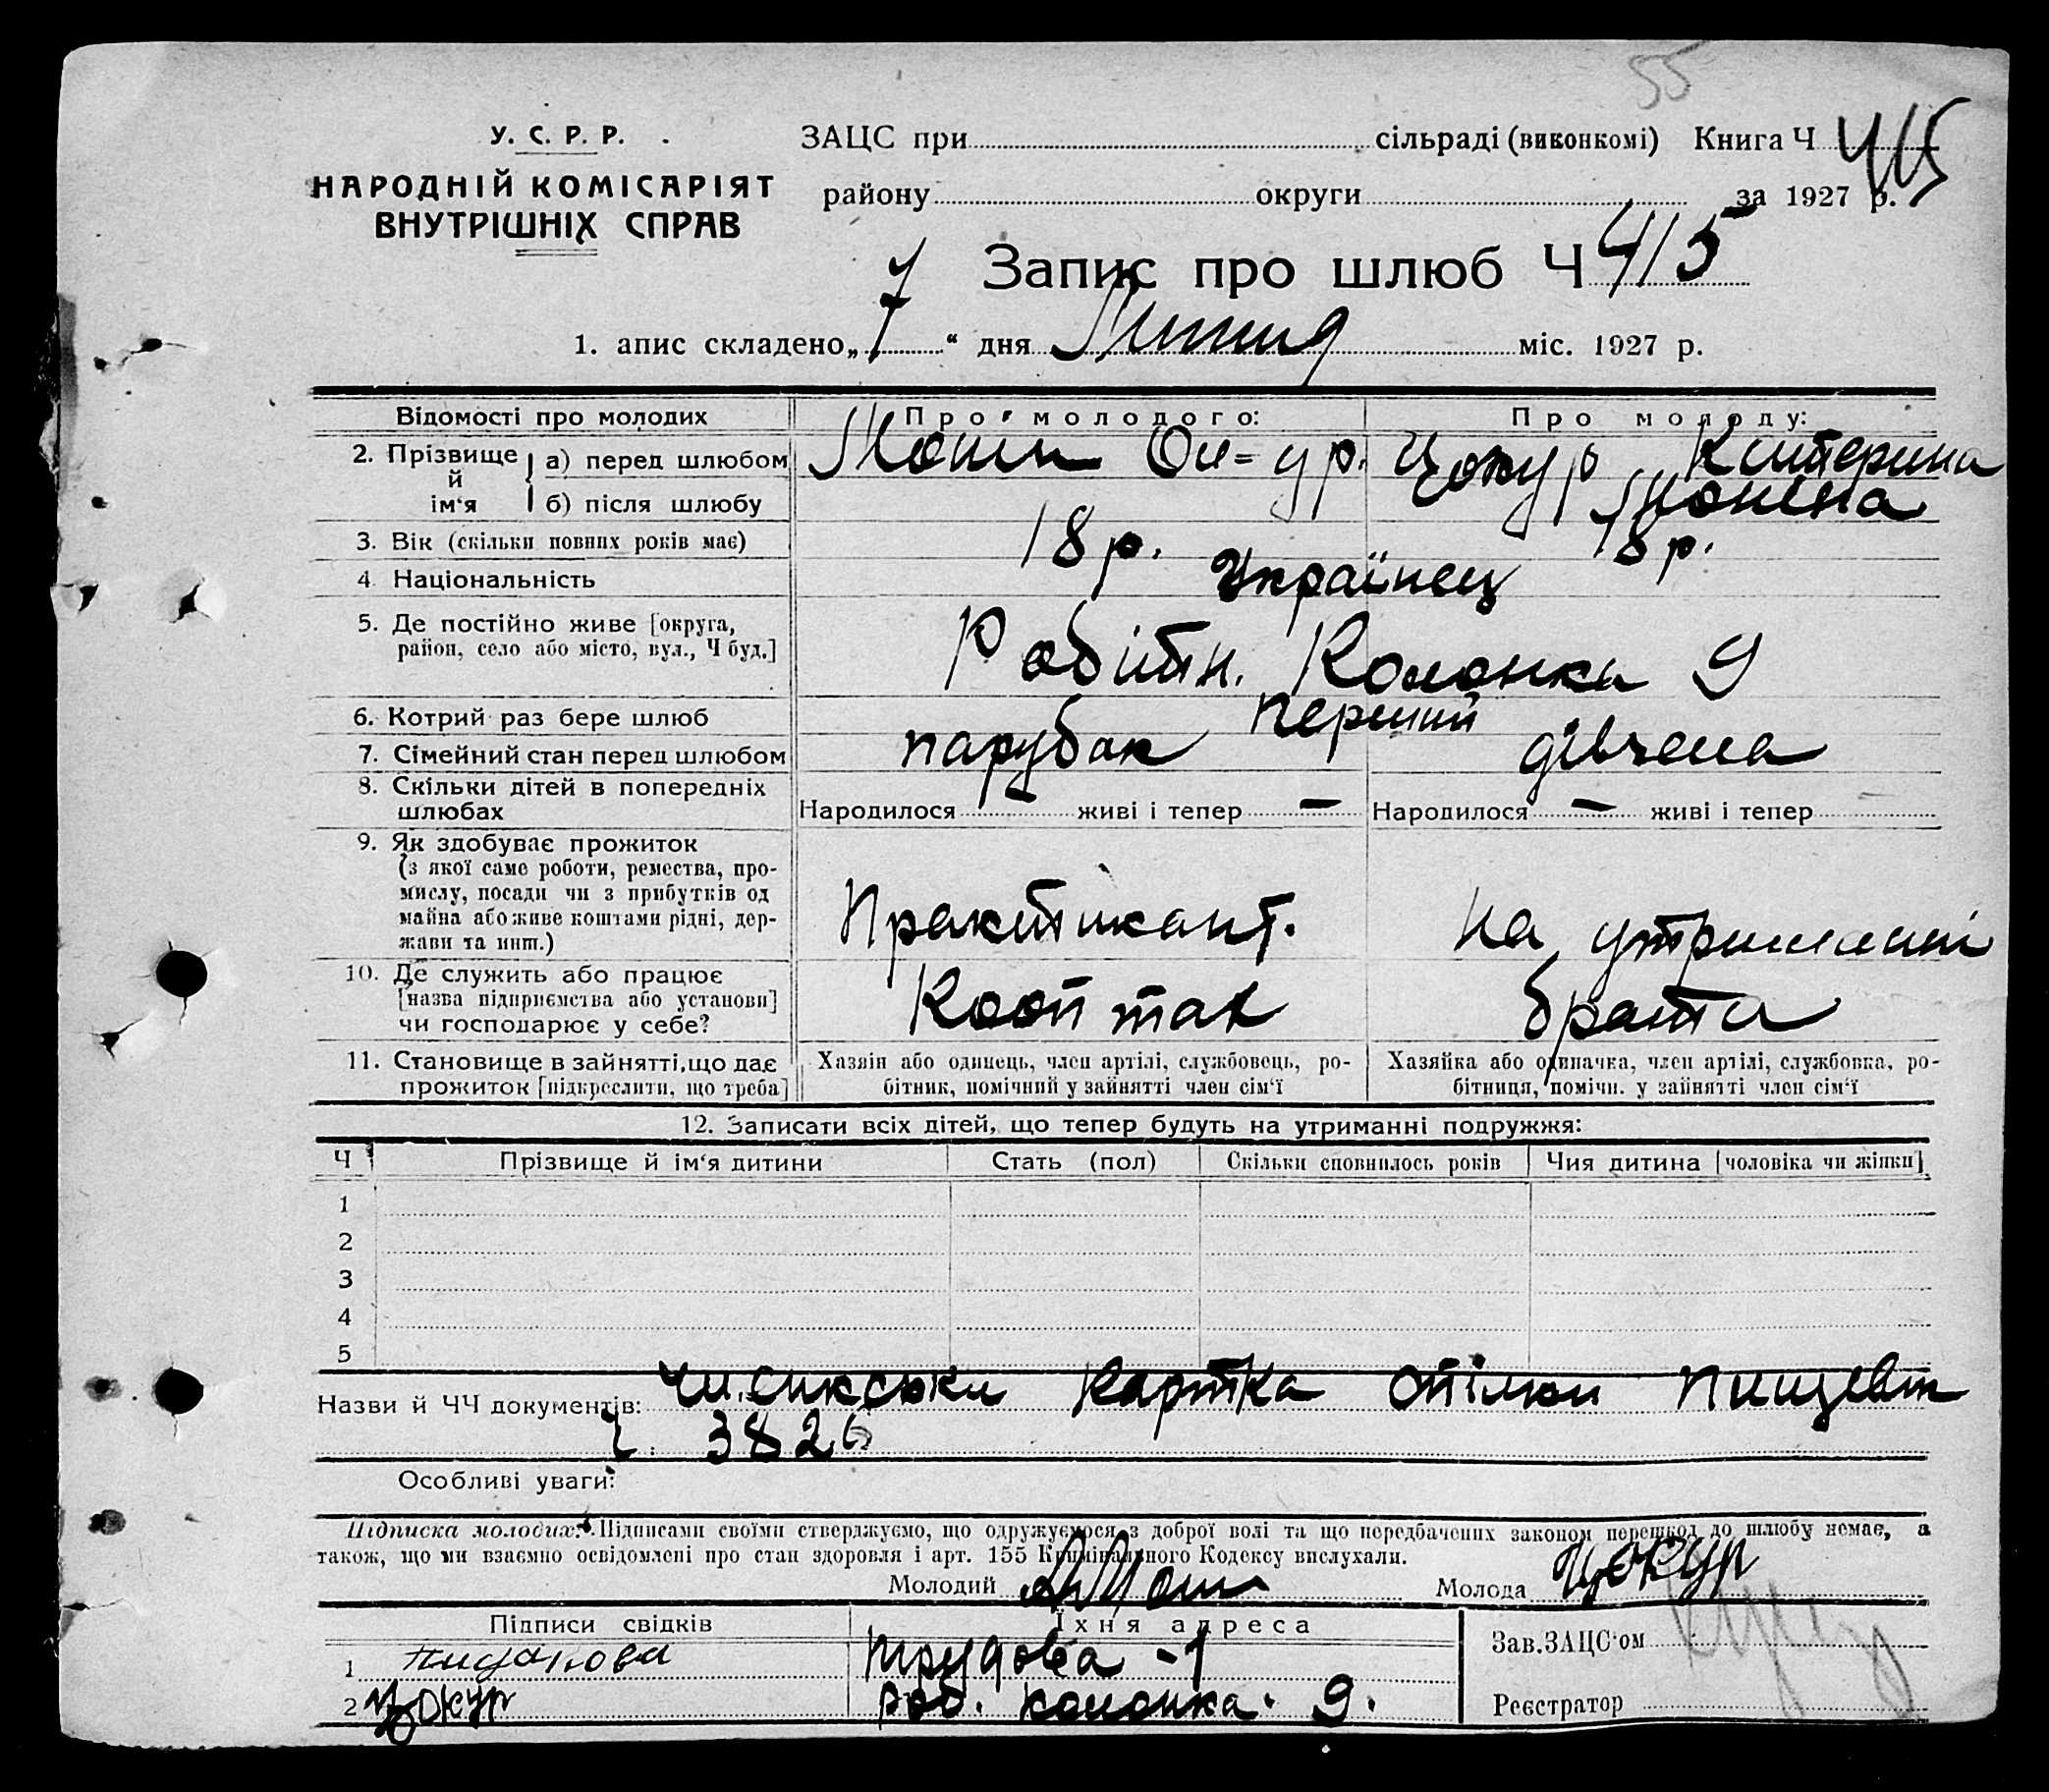 55
У. С. Р. Р.
НАРОДНІЙ КОМІСАРІЯТ
ВНУТРІШНІХ СПРАВ
ЗАЦС при сільраді (виконкомі) Книга Ч 415
району округи за 1927 р.
Запис про шлюб Ч 415
1. апис складено „7“ дня Липня міс. 1927 р.
Відомості про молодих
Про молодого:
Про молоду:
2. Прізвище й ім‘я
а) перед шлюбом
Цокур Катерина
б) після шлюбу
3. Вік (скільки повних років має)
18 р.
18 р.
4 Національність
Українец
5. Де постійно живе [округа, район, село або місто, вул., Ч буд.]
Робітн. Колонка 9
6. Котрий раз бере шлюб
Перший
7. Сімейний стан перед шлюбом
парубак
дівчена
8. Скільки дітей в попередніх шлюбах
Народилося – живі і тепер –
Народилося – живі і тепер
9. Як здобуває прожиток
(з якої саме роботи, ремества, про-
мислу, посади чи з прибутків од
майна або живе коштами рідні, дер-
жави та инш.)
Практікант.
на утриманні
10. Де служить або працює
[назва підприємства або установи]
чи господарює у себе?
брата
11. Становище в зайнятті, що дає
прожиток [підкреслити, що треба]
Хазяїн або одинець, член артілі, службовець, ро-
бітник, помічний у зайнятті член сім‘ї
Хазяйка або одиначка, член артілі, службовка, ро-
бітниця, помічн. у зайнятті член сім‘ї
12. Записати всіх дітей, що тепер будуть на утриманні подружжя:
Ч
Прізвище й ім‘я дитини
Стать (пол)
Скільки сповнилось років
Чия дитина [чоловіка чи жінки]
1
2
3
4
5
Назви й ЧЧ документів: картка
3826
Особливі уваги:
Підписка молодих: Підписами своїми стверджуємо, що одружуємося з доброї волі та що передбачених законом перешкод до шлюбу немає, а
також, що ми взаємно освідомлені про стан здоровля і арт. 155 Кримінального Кодексу вислухали.
Молодий
Молода Цокур
Підписи свідків
Їхня адреса
1
Трудова - 1
2 Цокур
роб. колонка. 9.
Зав. ЗАЦС‘ом
Реєстратор